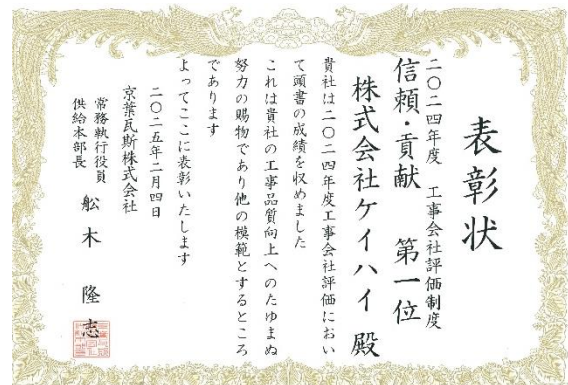 表彰状
二〇二四年度 工事会社評価制度
信頼・貢献 第一位
株式会社ケイハイ 殿
貴社は二〇二四年度工事会社評価におい
て頭書の成績を収めました
これは貴社の工事品質向上へのたゆまぬ
努力の賜物であり他の模範とするところ
であります
よってここに表彰いたします
二〇二五年二月四日
京葉瓦斯株式会社
常務執行役員
供給本部長
舩木 隆志